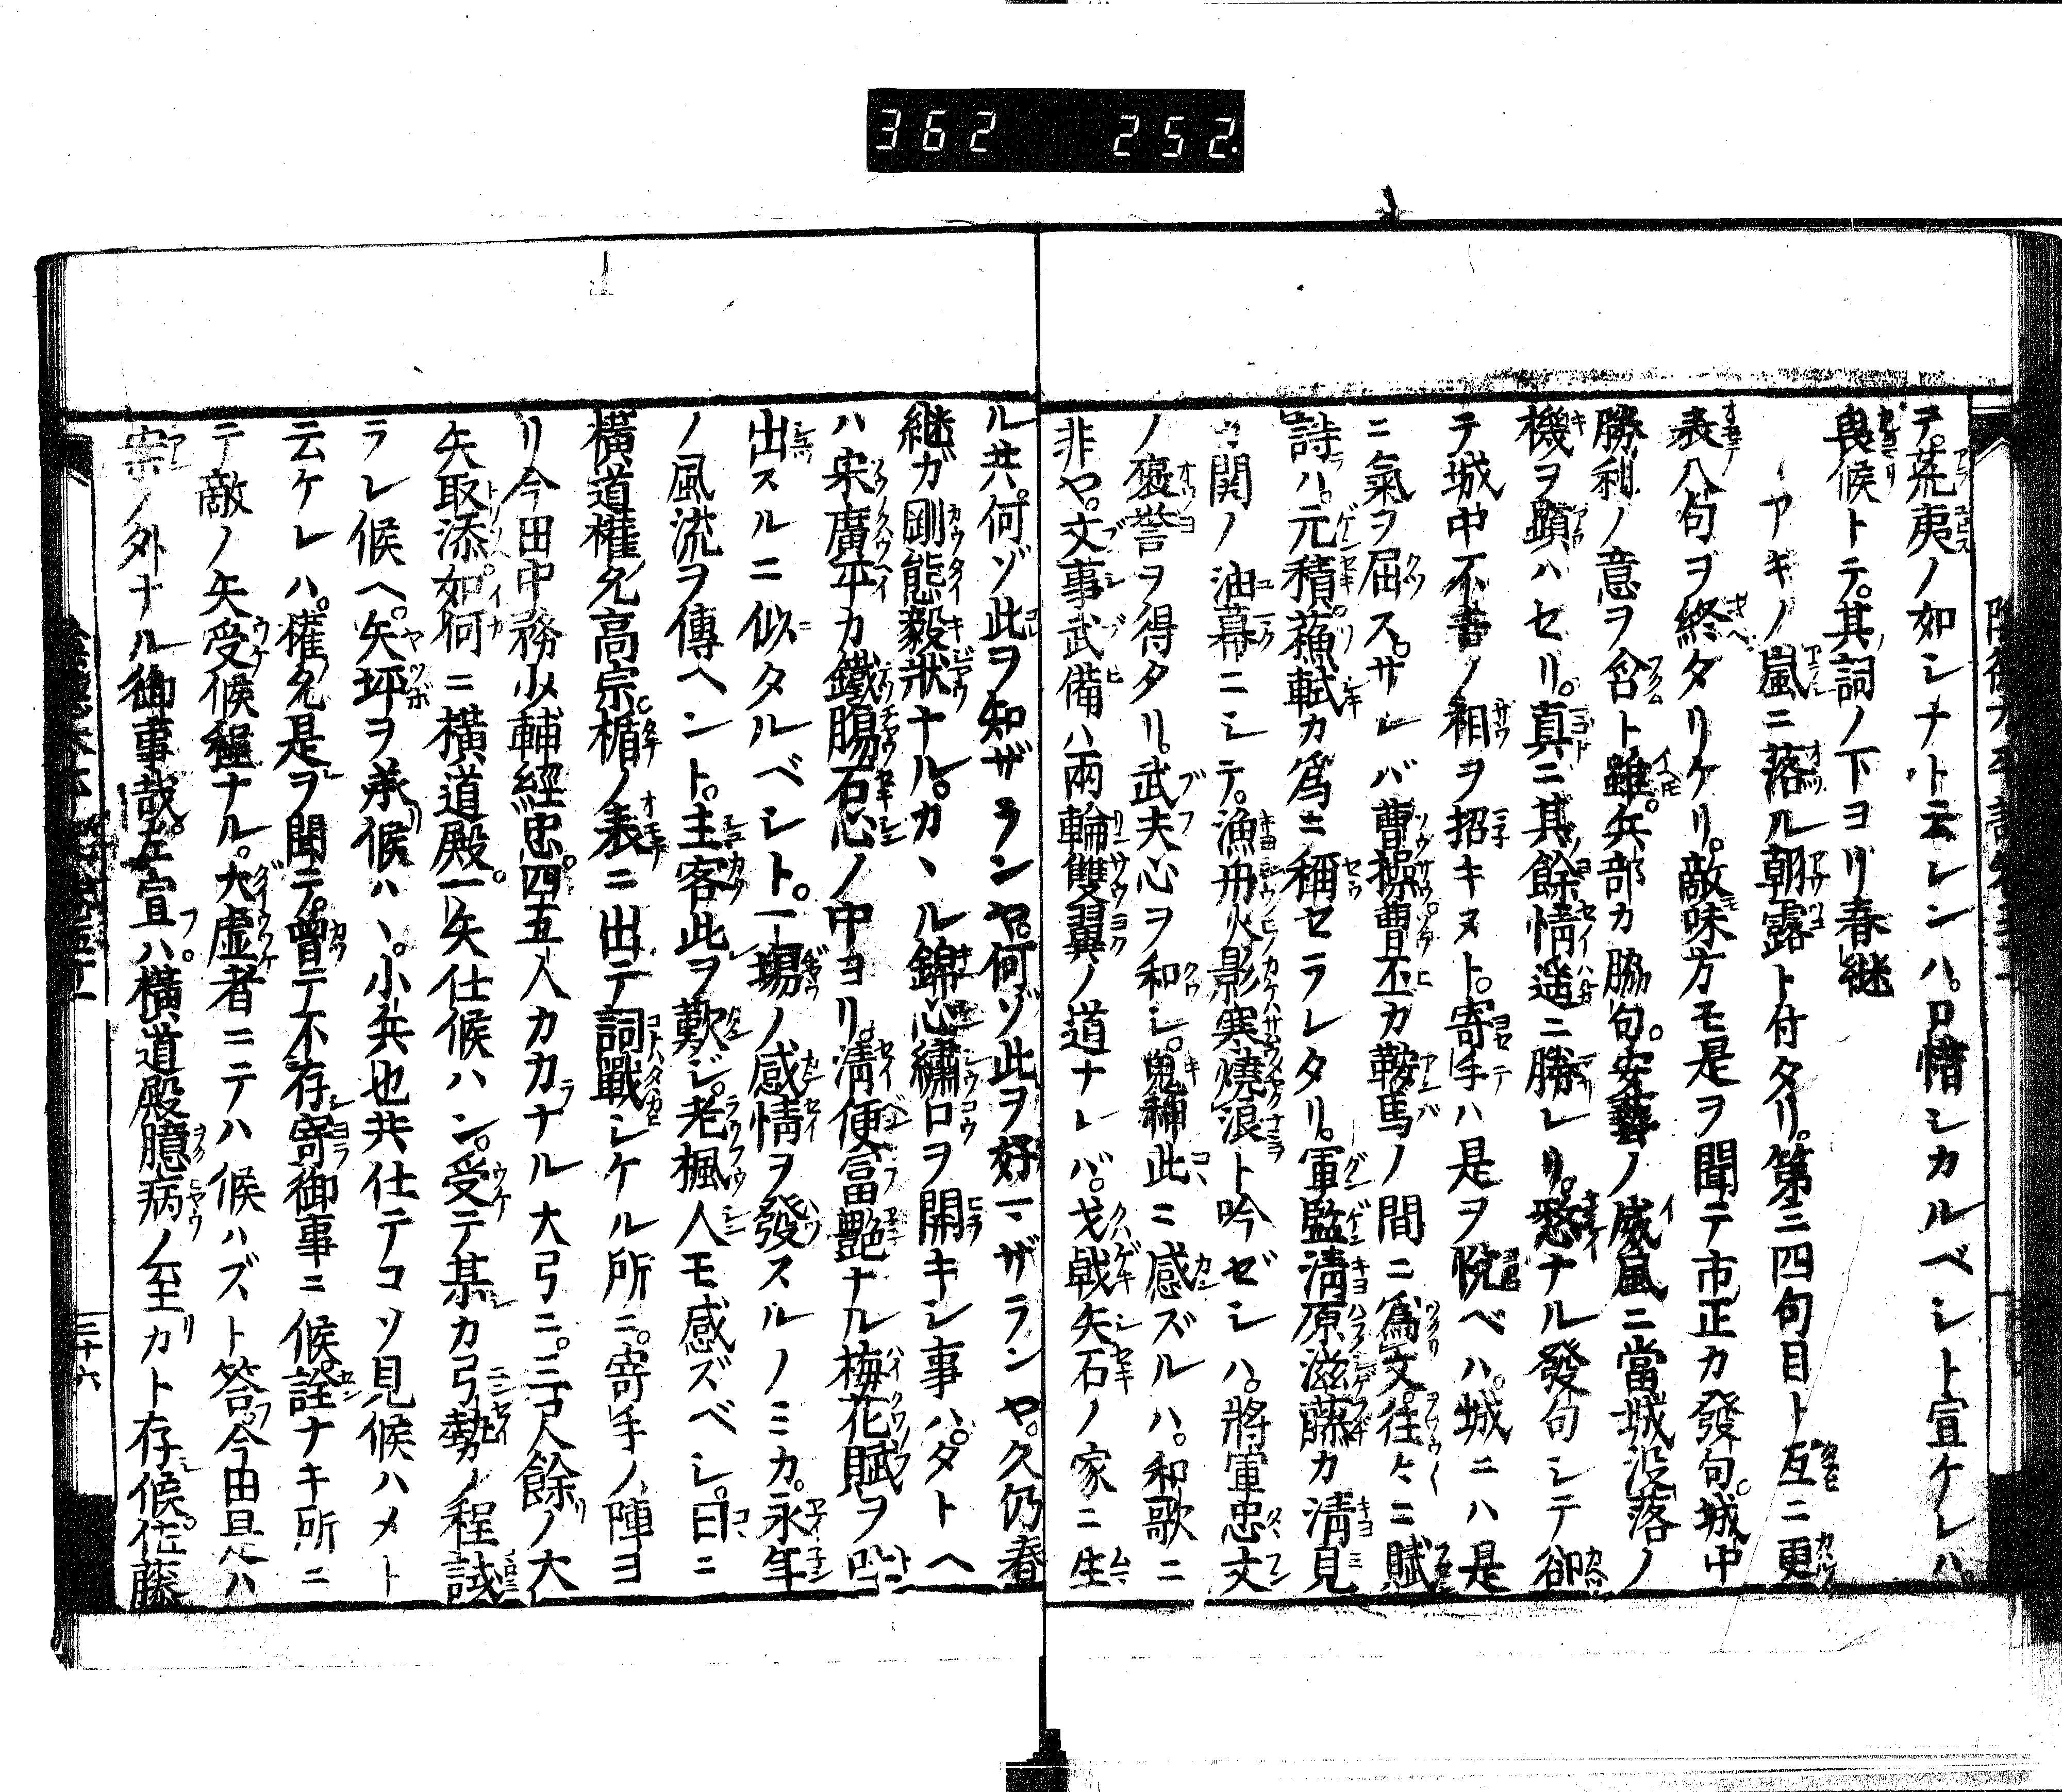 362 252.
ヲ。荒夷ノ如シナト云レンハ。口惜シカルベシト宣ケレハ。
畏候トテ。其詞ノ下ヨリ春継
アキノ嵐ニ落ル朝露ト付タリ。第三四句目ト互ニ更
表八句ヲ終タリケリ。敵味方モ是ヲ聞テ市正カ發句。城中
勝利ノ意ヲ含ト雖。兵部カ脇句。安藝ノ威嵐ニ當城没落ノ
機ヲ顕ハセリ。真ニ其餘情遥ニ勝レリ。愁ナル發句シテ卻
テ城中不吉ノ相ヲ招キヌト。寄手ハ是ヲ悦ベハ。城ニハ是
ニ氣ヲ屈ス。サレバ曹操曹丕カ鞍馬ノ間ニ為文。往々ニ賦
詩ハ。元積蘓軾カ為ニ稱セラレタリ。軍監淸原滋藤カ淸見
関ノ油幕ニシテ。漁舟火影寒燒浪ト吟ゼシハ。將軍忠文
ノ褒誉ヲ得タリ。武夫心ヲ和シ。鬼神此ニ感ズルハ。和歌ニ
非ヤ。文事武備ハ兩輪雙翼ノ道ナレバ。戈戟矢石ノ家ニ生
ル共。何ゾ此ヲ知ザランヤ。何ゾ此ヲ好ザランヤ。久仍春
継ガ剛態毅狀ナル。カヽル錦心繡口ヲ開キシ事ハ。タトヘ
ハ宋廣平カ鐵腸石心ノ中ヨリ。淸便富艶ナル梅花賦ヲ
出スルニ似タルベシト。一場ノ感情ヲ發スルノミカ。永年
ノ風流ヲ傳ヘント。主客此ヲ歎ジ。老楓人モ感ズベシ。曰ニ
橫道權允高宗楯ノ表ニ出テ詞戰シケル所ニ。寄手ノ陣ヨ
リ今田中務少輔經忠。四五人カカナル大弓ニ。三尺餘ノ大
矢取添。如何ニ橫道殿。一矢仕候ハン。受テ某カ弓勢ノ程試
ラレ候ヘ。矢坪ヲ承候ハヽ。小兵也共仕テコソ見候ハメト
云ケレハ。權允是ヲ聞テ。曾テ不存寄御事ニ候。詮ナキ所ニ
テ敵ノ矢受候程ナル。大虚者ニテハ候ハズト答。今田是ハ
案ノ外ナル御事哉。左宣ハ橫道殿臆病ノ至カト存候。佐藤
三十六